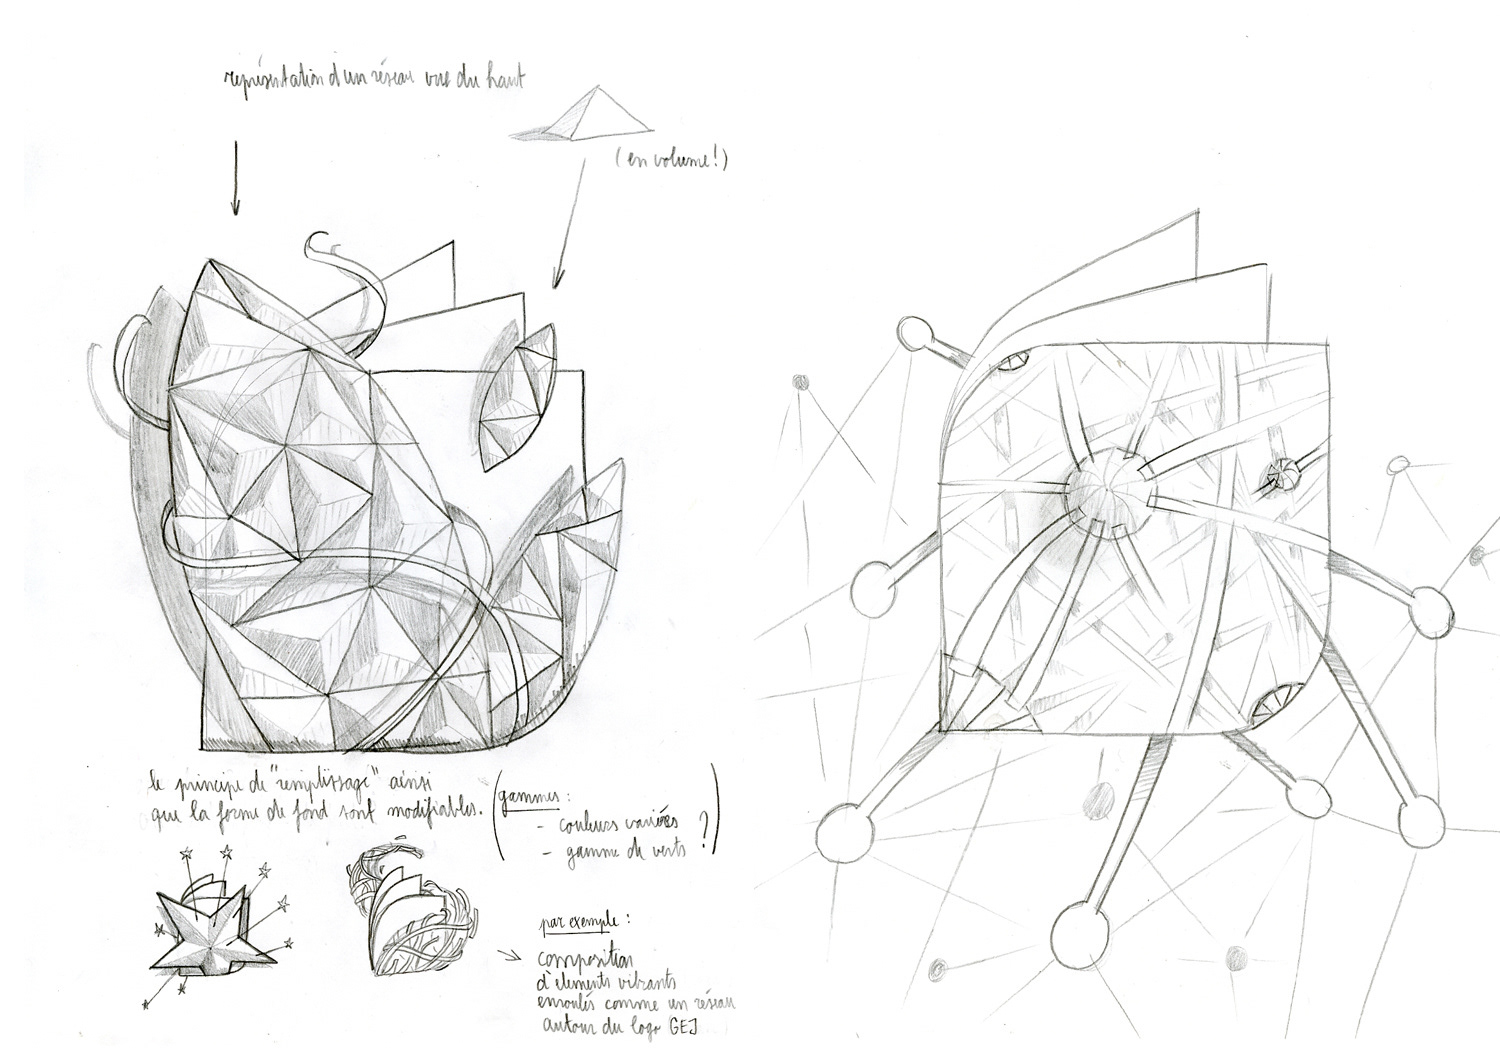 représentation d'un réseau vue du haut
(en volume!)
le principe de "remplissage" ainsi
que la forme de fond sont modifiables.
(gammes:
- couleurs variées
- gamme de verts ?)
par exemple:
composition
d'élements vibrants
enroulés comme un réseau
autour du logo GEJ